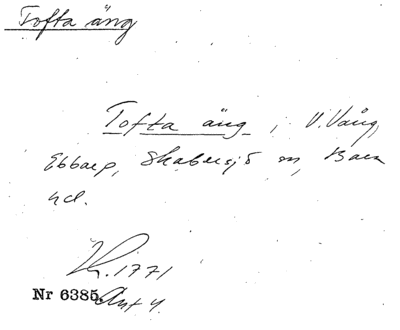 Tofta äng
Tofta äng, i V. Vång,
Ebbarp, Skabersjö sn, Bara
hd.
Kh. 1771
Nr 6385. Akt 4.